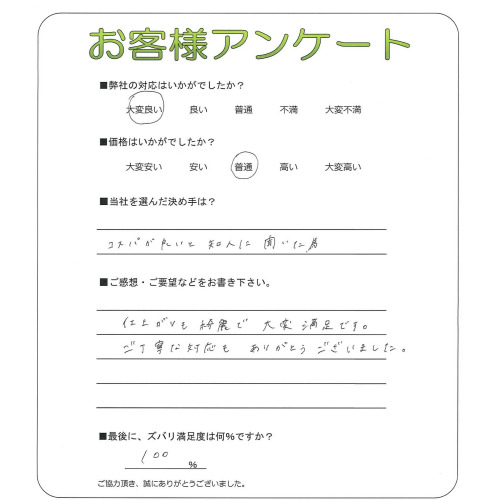 お客様アンケート
■弊社の対応はいかがでしたか？
大変良い 良い 普通 不満 大変不満
■価格はいかがでしたか？
大変安い 安い 普通 高い 大変高い
■当社を選んだ決め手は？
コスパが良いと 知人に 聞いた為
■ご感想・ご要望などをお書き下さい。
仕上がりも 綺麗で 大変 満足です。
ご丁寧な対応も ありがとう ございました。
■最後に、ズバリ満足度は何％ですか？
100 ％
ご協力頂き、誠にありがとうございました。